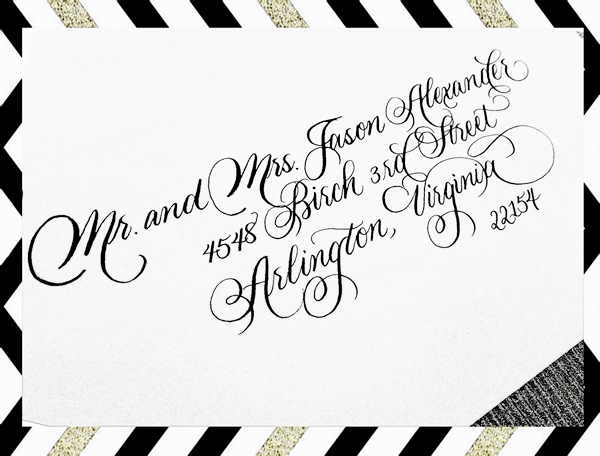 Mr. and Mrs. Jason Alexander
4548 Birch 3rd Street
Arlington, Virginia
22154